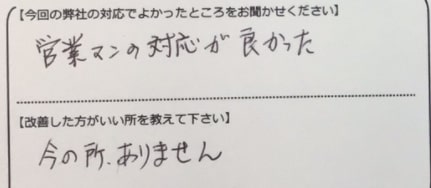 【今回の弊社の対応でよかったところをお聞かせください】
営業マンの対応が良かった
【改善した方がいい所を教えて下さい】
今の所、ありません